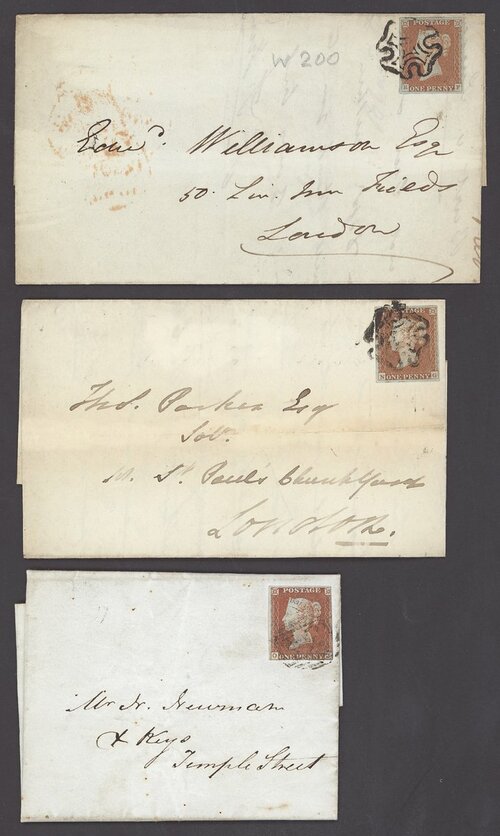 W 200
POSTAGE
ONE PENNY
Edwd. Williamson Esq
50. Lin. Inn Fields
London
POSTAGE
ONE PENNY
Thos. Parker Esq
Solr.
St. Paul's Church Yard
London.
POSTAGE
ONE PENNY
Mr N. Newman
& Keys
Temple Street